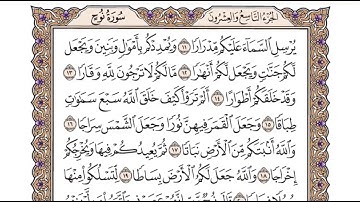 سُورَةُ نُوحٍ
الجُزْءُ التَّاسِعُ وَالعِشْرُونَ
يُرْسِلِ السَّمَآءَ عَلَيْكُم مِّدْرَارًا ١١ وَيُمْدِدْكُم بِأَمْوَٰلٍ وَبَنِينَ وَيَجْعَل
لَّكُمْ جَنَّٰتٍ وَيَجْعَل لَّكُمْ أَنْهَٰرًا ١٢ مَّا لَكُمْ لَا تَرْجُونَ لِلَّهِ وَقَارًا ١٣
وَقَدْ خَلَقَكُمْ أَطْوَارًا ١٤ أَلَمْ تَرَوْا۟ كَيْفَ خَلَقَ ٱللَّهُ سَبْعَ سَمَٰوَٰتٍ
طِبَاقًا ١٥ وَجَعَلَ ٱلْقَمَرَ فِيهِنَّ نُورًا وَجَعَلَ ٱلشَّمْسَ سِرَاجًا ١٦
وَٱللَّهُ أَنۢبَتَكُم مِّنَ ٱلْأَرْضِ نَبَاتًا ١٧ ثُمَّ يُعِيدُكُمْ فِيهَا وَيُخْرِجُكُمْ
إِخْرَاجًا ١٨ وَٱللَّهُ جَعَلَ لَكُمُ ٱلْأَرْضَ بِسَاطًا ١٩ لِّتَسْلُكُوا۟ مِنْهَا